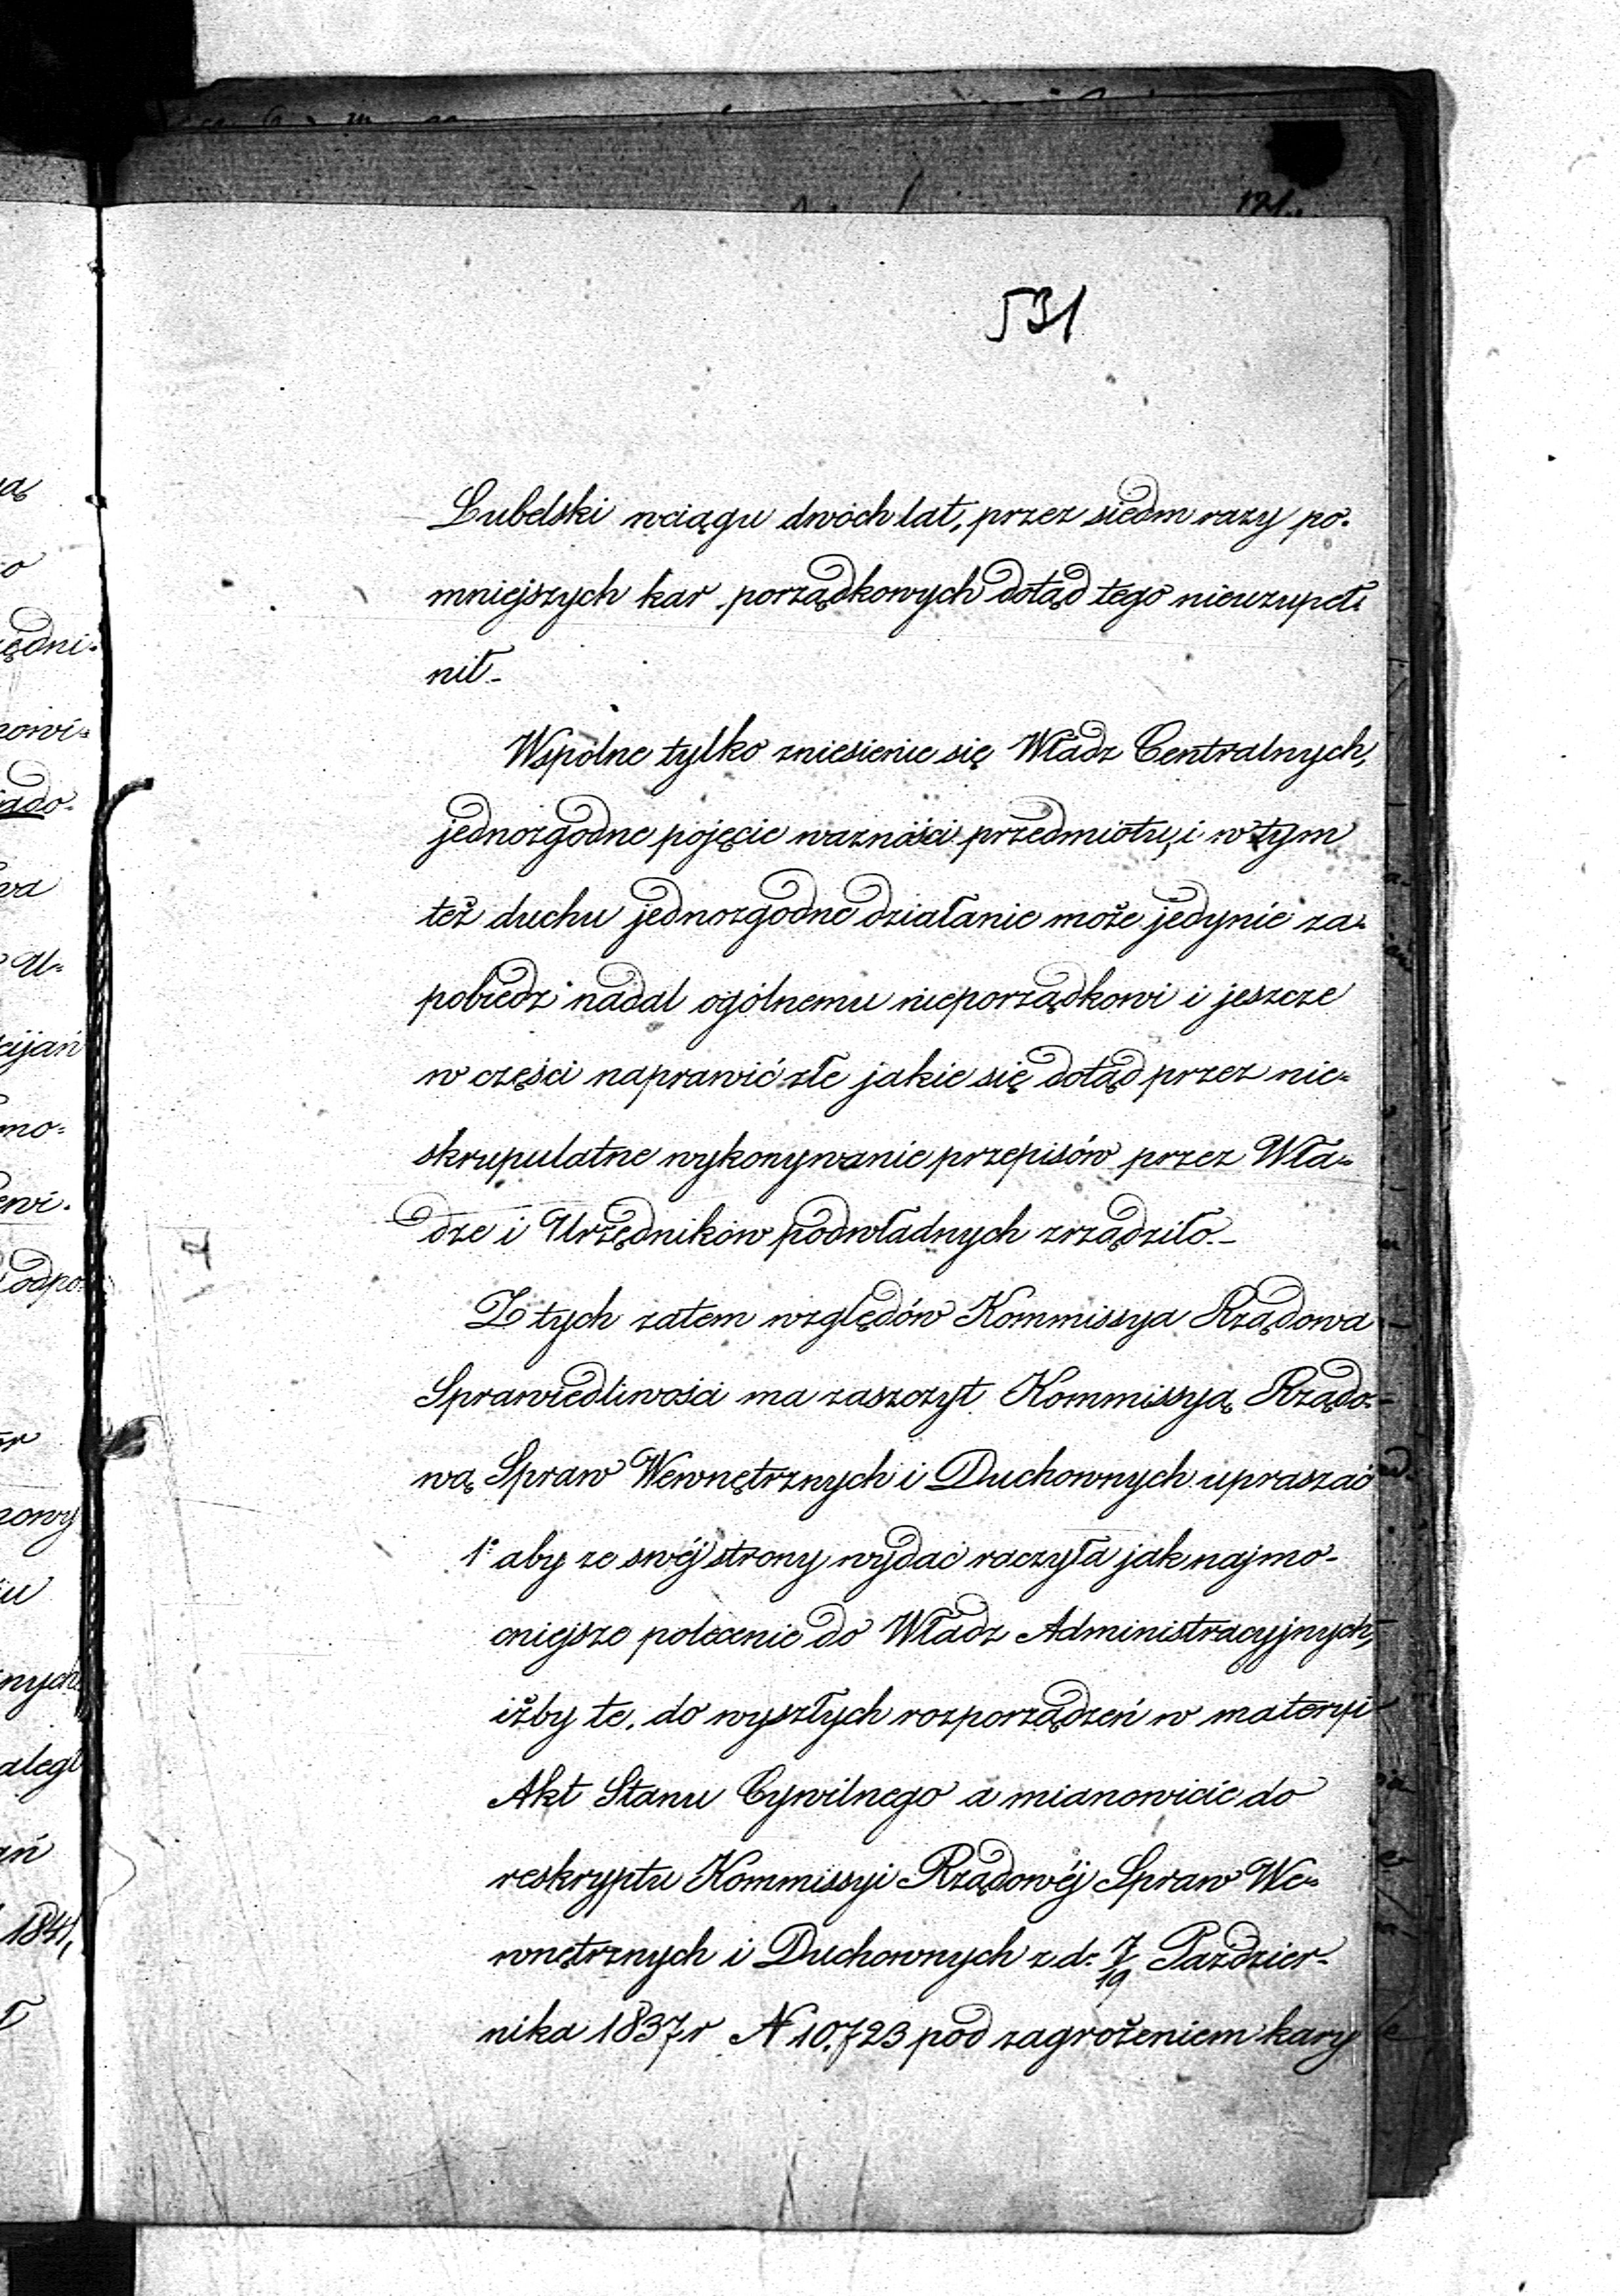 531
Lubelski wciągu dwóch lat, przez siedm razy po-
mniejszych kar porządkowych dotąd tego nieuzupeł-
nił_
Wspólne tylko zniesienie się Władz Centralnych,
jednozgodne pojęcie ważności przedmiotu, i w tym
też duchu jednozgodne działanie może jedynie za-
pobiedz nadal ogólnemu nieporządkowi i jeszcze
w części naprawić złe jakie się dotąd przez nie-
skrupulatne wykonywanie przepisów przez Wła-
dze i Urzędników podwładnych zrządziło._
Z tych zatem względów Kommissya Rządowa
Sprawiedliwości ma zaszczyt Kommissyą Rządo-
wą Spraw Wewnętrznych i Duchownych upraszać
1º aby ze swéj strony wydać raczyła jak najmo-
cniejsze polecenie do Władz Administracyjnych,
iżby te, do wyszłych rozporządzeń w materyi
Akt Stanu Cywilnego a mianowicie do
reskryptu Kommissyi Rządowéj Spraw We-
wnętrznych i Duchownych z d: 7/19 Paździer-
nika 1837 r N 10.723 pod zagrożeniem kary